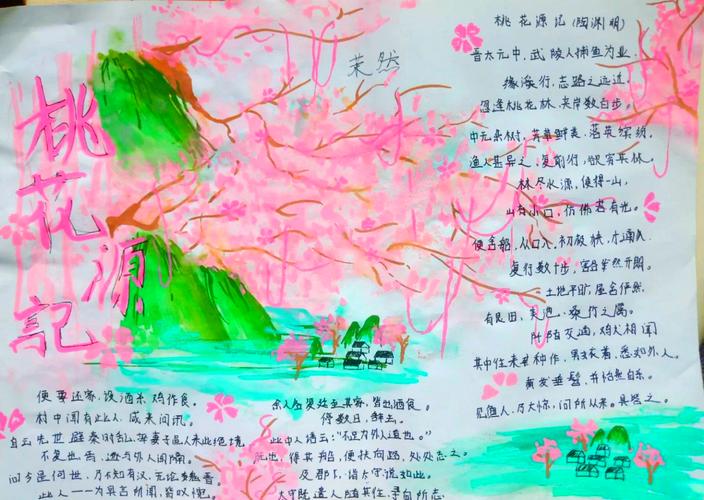 桃花源記
茉然
桃花源记(陶渊明)
晋太元中,武陵人捕鱼为业。
缘溪行,忘路之远近。
忽逢桃花林,夹岸数百步。
中无杂树,芳草鲜美,落英缤纷。
渔人甚异之,复前行,欲穷其林。
林尽水源,便得一山,
山有小口,仿佛若有光。
便舍船,从口入,初极狭,才通人。
复行数十步,豁然开朗。
土地平旷,屋舍俨然,
有良田、美池、桑竹之属。
阡陌交通,鸡犬相闻
其中往来种作,男女衣着,悉如外人。
黄发垂髫,并怡然自乐。
见渔人,乃大惊,问所从来。具答之。
便要还家,设酒杀鸡作食。
村中闻有此人,咸来问讯。
自云先世避秦时乱,率妻子邑人来此绝境
不复出焉,遂与外人间隔。
问今是何世,乃不知有汉,无论魏晋
此人一一为具言所闻,皆叹惋。
余人各复延至其家,皆出酒食。
停数日,辞去。
此中人语云:“不足为外人道也。”
既出,得其船,便扶向路,处处志之。
及郡下,诣太守说如此。
太守即遣人随其往,寻向所志